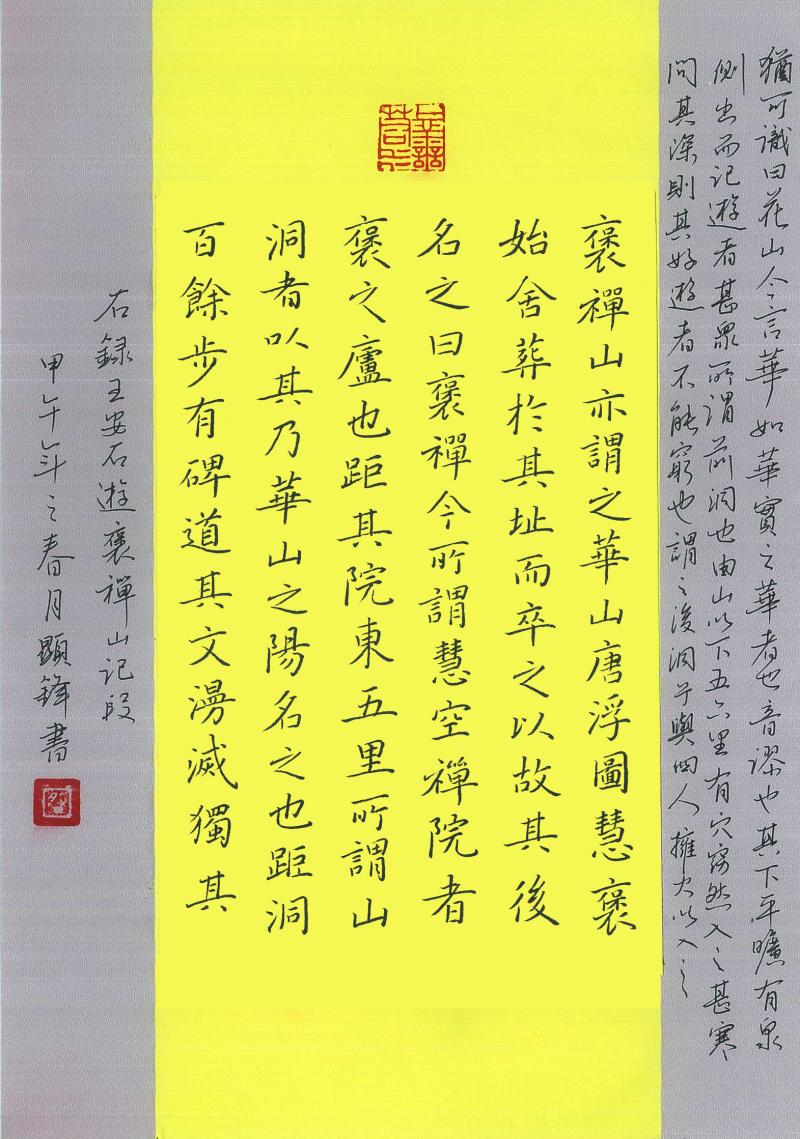 褒禪山亦謂之華山唐浮圖慧褒
始舍葬於其址而卒之以故其後
名之曰褒禪今所謂慧空禪院者
褒之廬也距其院東五里所謂山
洞者以其乃華山之陽名之也距洞
百餘步有碑道其文漫滅獨其
猶可識曰花山今言華如華實之華者也音謬也其下平曠有泉
側出而記遊者甚眾所謂前洞也由山以下五六里有穴窈然入之甚寒
問其深則其好遊者不能窮也謂之後洞予與四人擁火以入之
右録王安石遊褒禪山記段
甲午年之春月顯鋒書